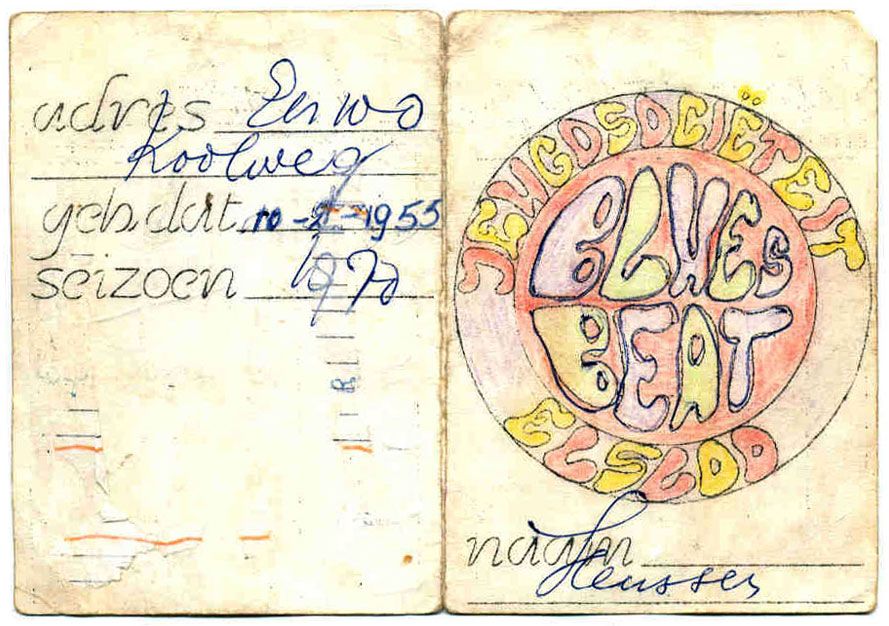 adres
Koolweg
geb.dat. 10-2-1955
seizoen 1970
JEUGDSOCIËTEIT
BLUES
BEAT
ELSLOO
naam
Heussen